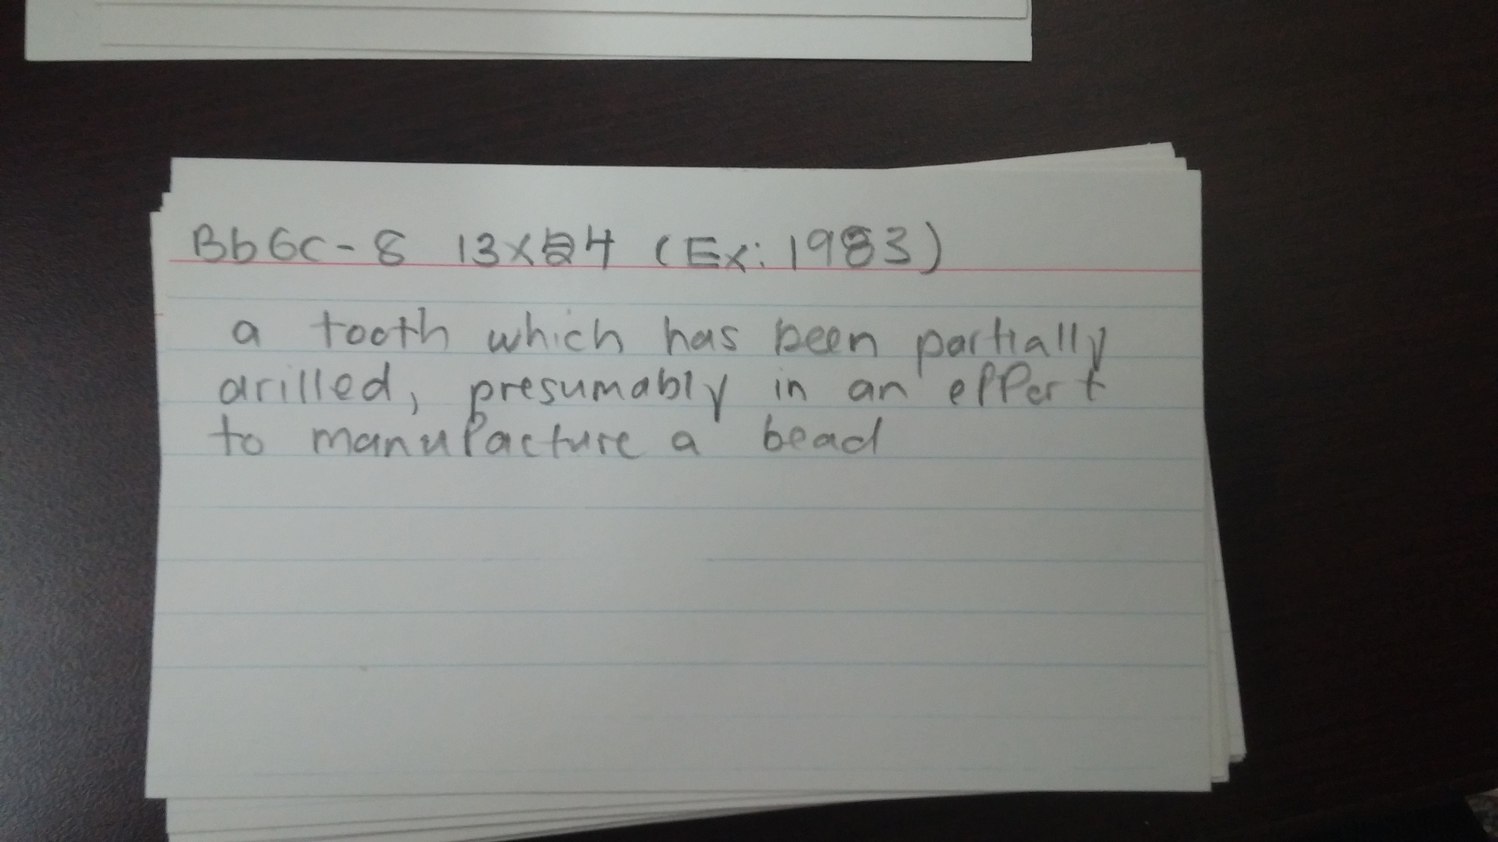 BbGc-8 13x24 (Ex: 1983)
a tooth which has been partially
drilled, presumably in an effort
to manufacture a bead